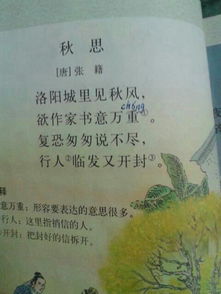 秋思
[唐]张籍
洛阳城里见秋风，
欲作家书意万重①。
chóng
复恐匆匆说不尽，
行人②临发又开封③。
释
意万重：形容要表达的意思很多。
行人：这里指捎信的人。
开封：把封好的信拆开。